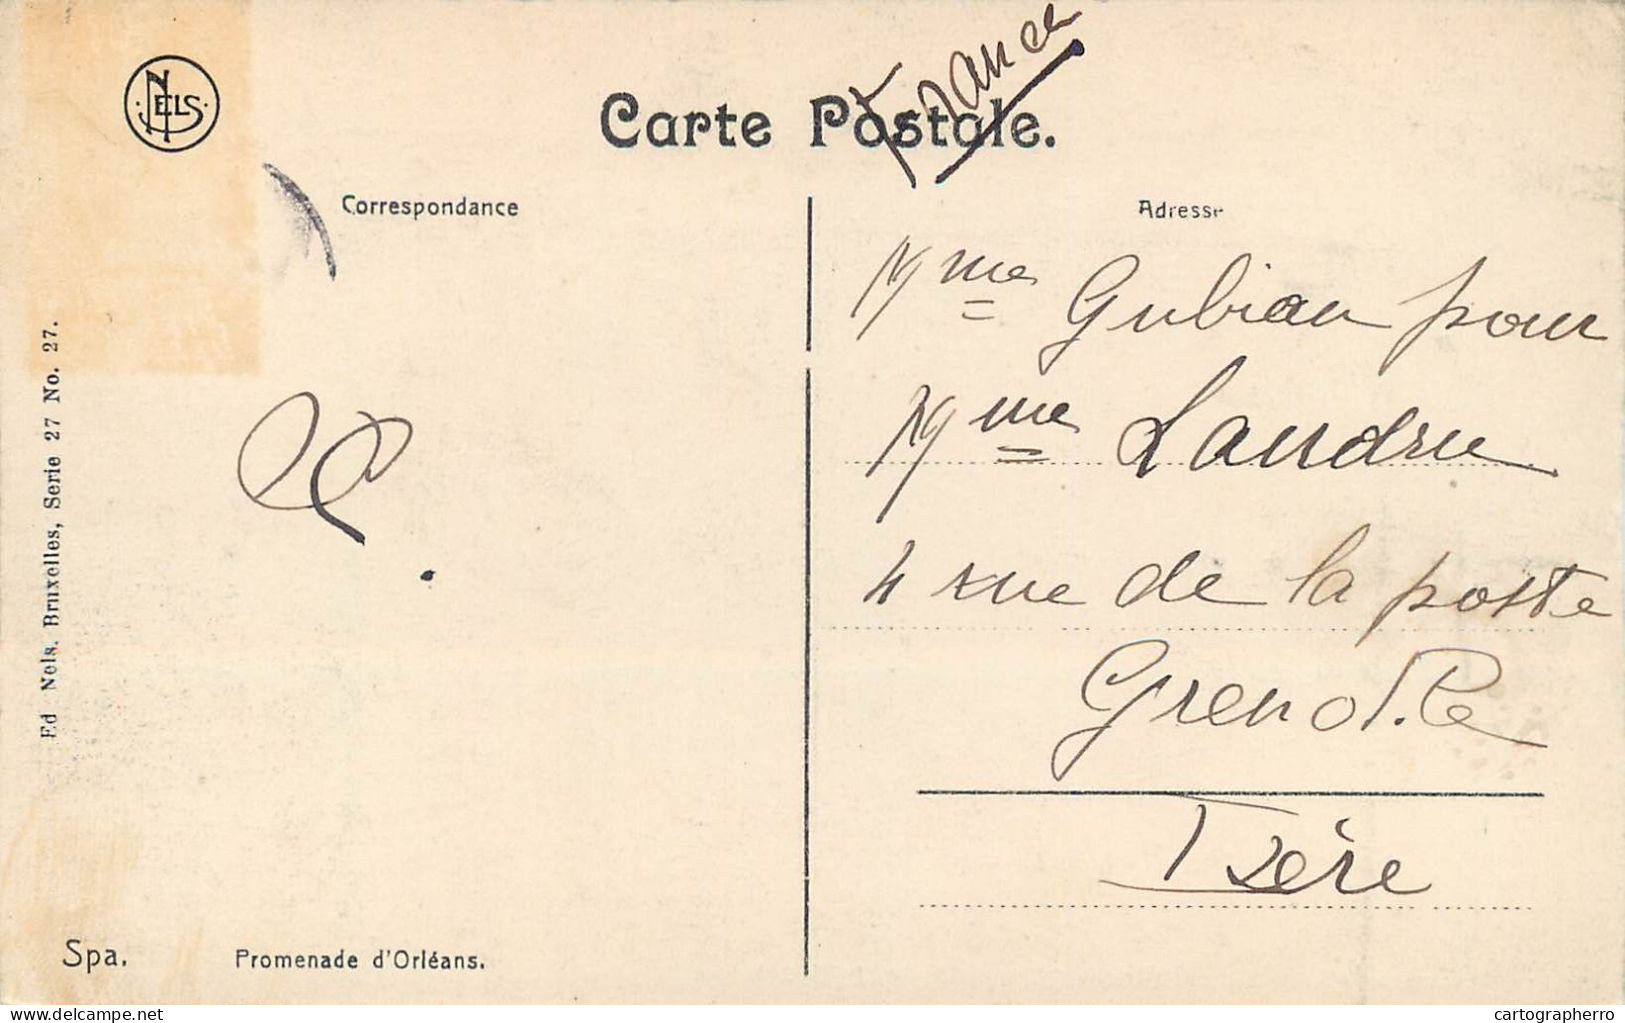 NELS
Carte Postale.
France
Correspondance
Adresse
Mme Gubian pour
Mme Landru
4 rue de la poste
Grenoble
Isère
Ed Nels. Bruxelles, Serie 27 No. 27.
Spa. Promenade d'Orléans.
delcampe.net
cartographerro